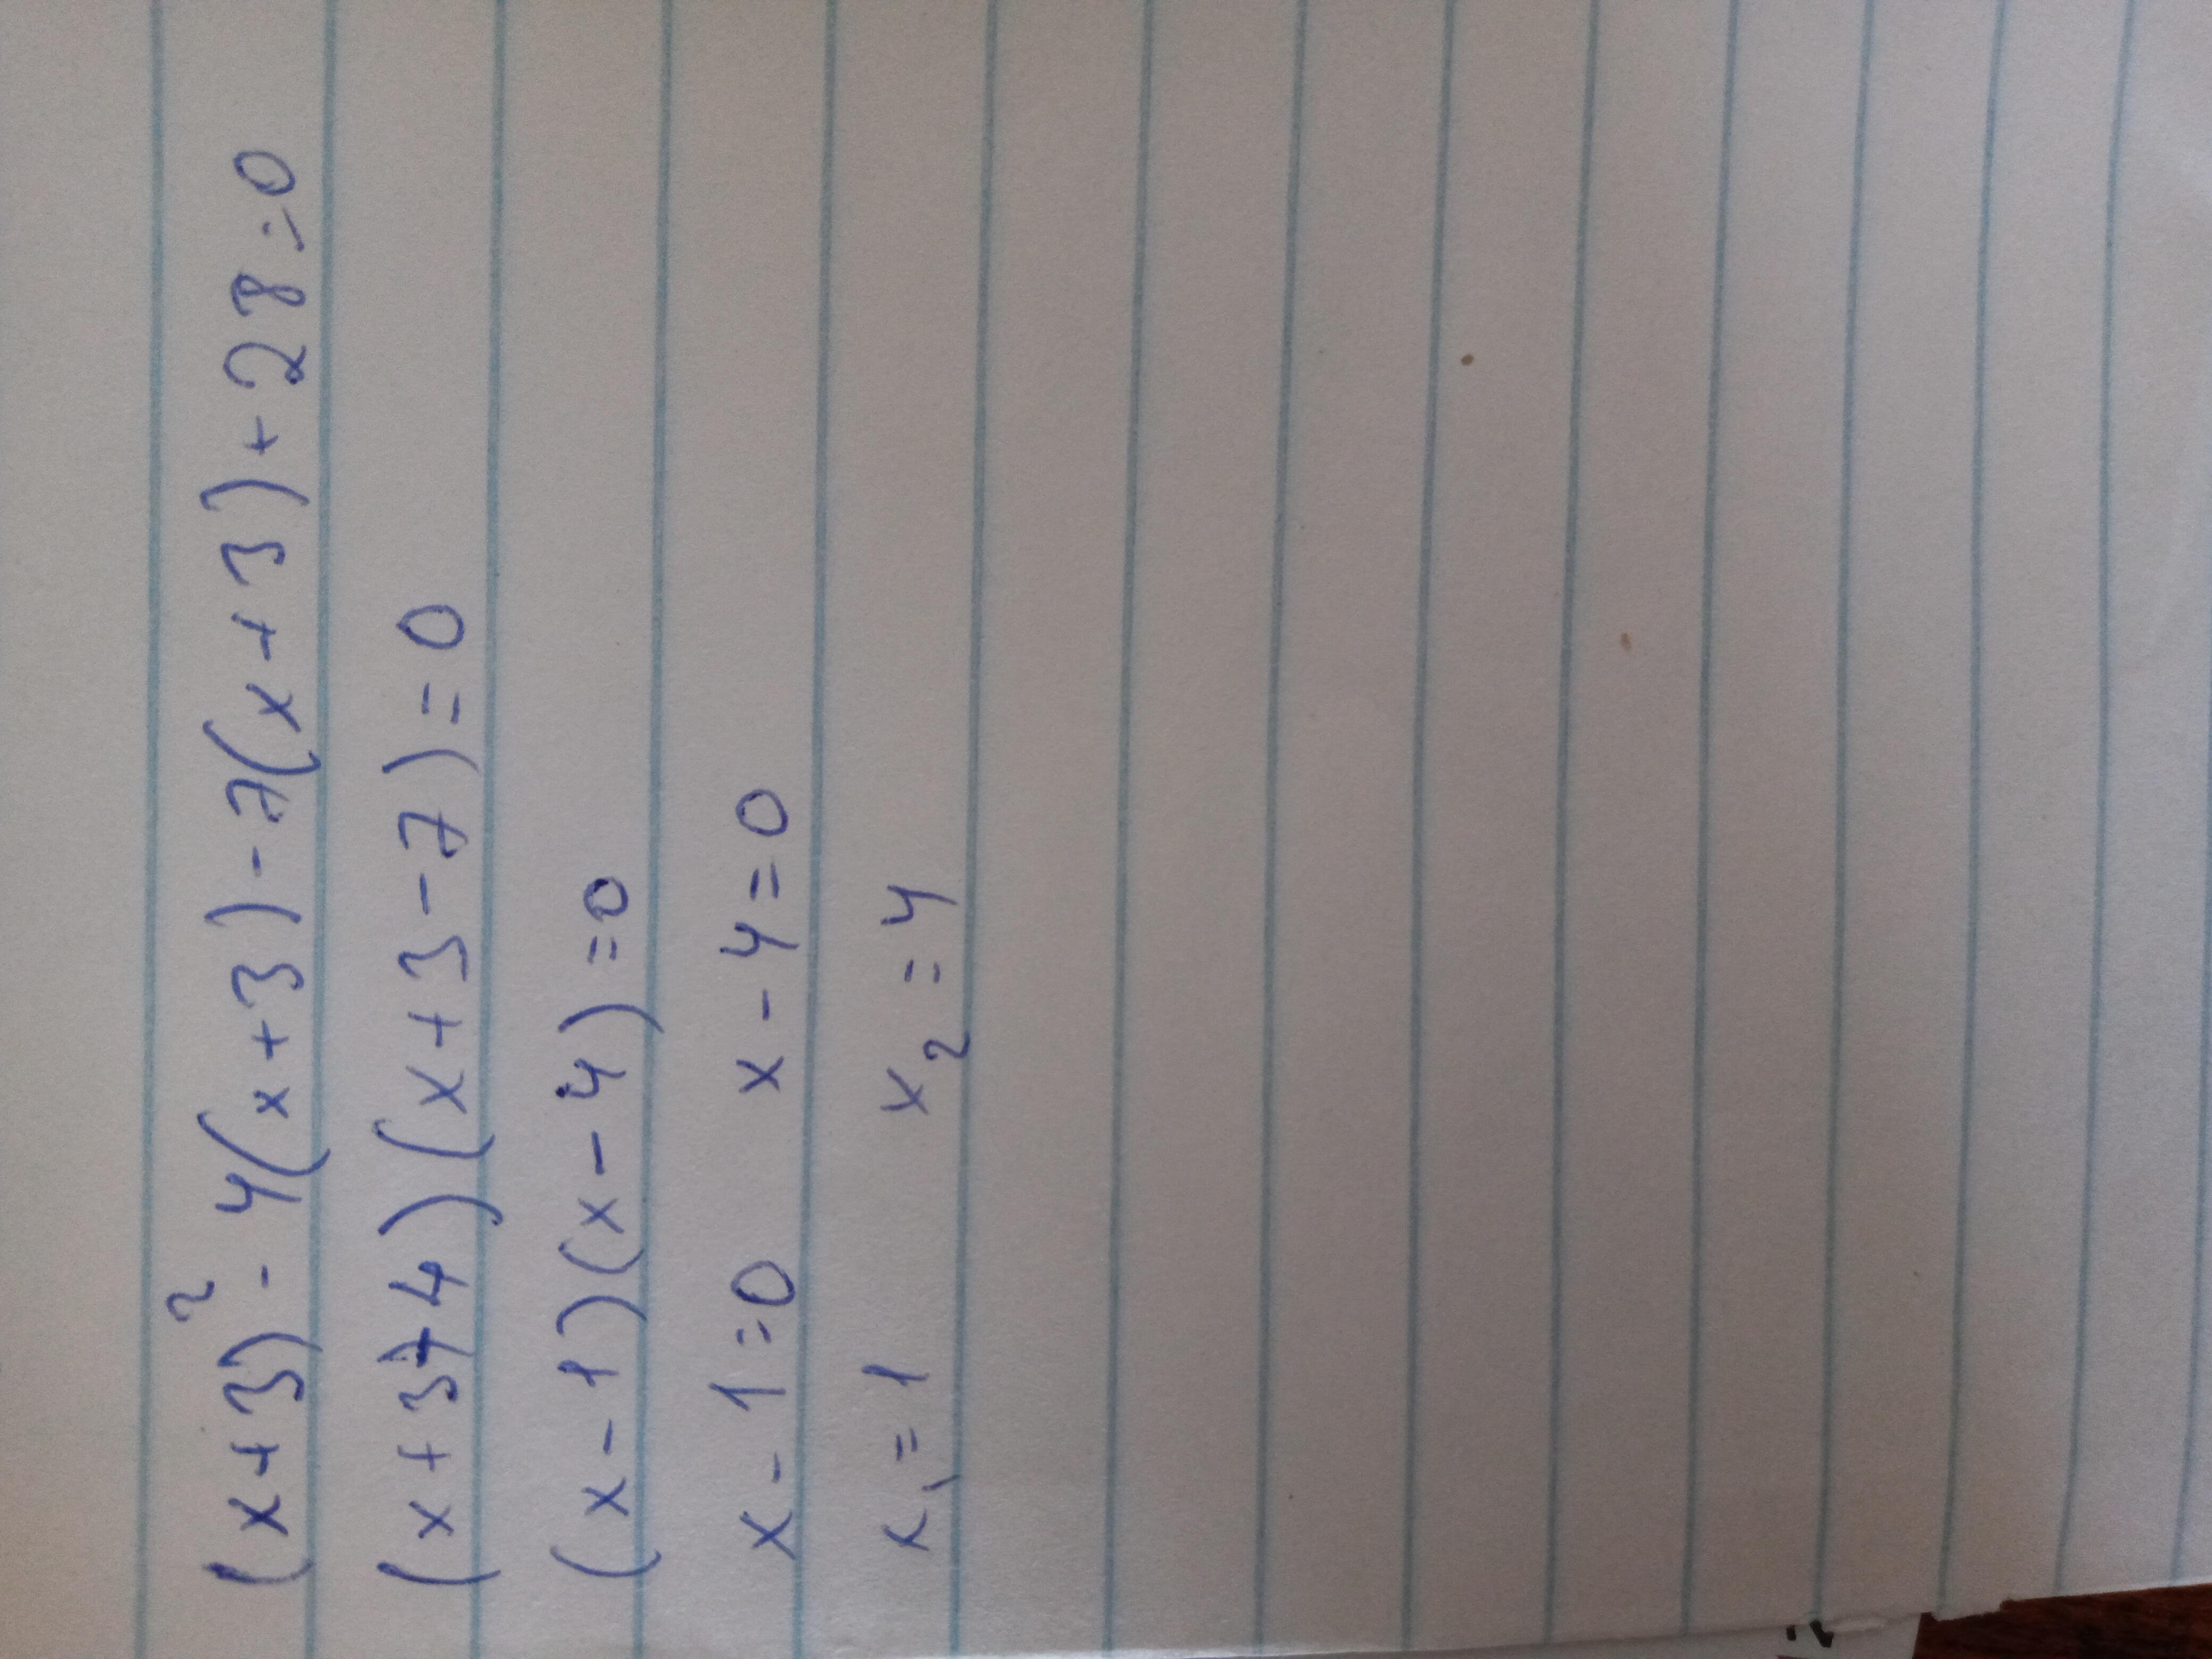 (x+3)² - 4(x+3) - 7(x+3) + 28 = 0
(x+3+4)(x+3-7) = 0
(x-1)(x-4) = 0
x-1=0 x-4=0
x₁=1 x₂=4